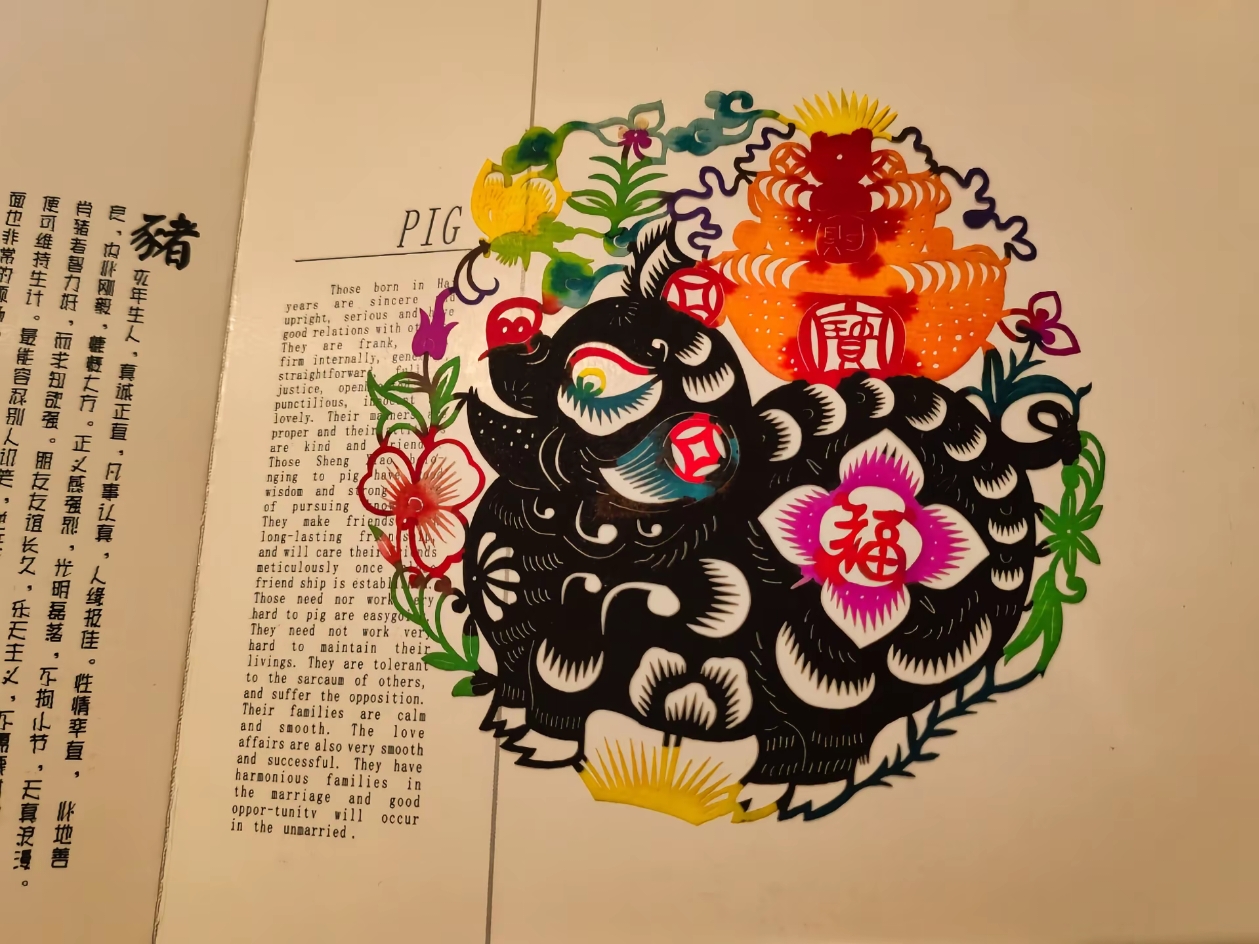 豬
亥年生人，真诚正直，凡事认真，人缘极佳。性情率直，心地善
良，内心刚毅，慷慨大方。正义感强烈，光明磊落，不拘小节，天真浪漫。
肖猪者智力好，而求知欲强。朋友友谊长久，乐天主义，不需要
便可维持生计。最能容忍别人讥笑，
面也非常的顺
PIG
Those born in
years are sincere
upright, serious and
good relations with
They are frank,
firm internally,
straightforward,
justice,
punctilious, innocent
lovely. Their manners
proper and their
are kind and
Those Sheng Xiao
nging to pig have
wisdom and strong
of pursuing
They make friends
long-lasting friendship,
and will care their friends
meticulously once
friend ship is established.
Those need nor work very
hard to pig are easygoing.
They need not work very
hard to maintain their
livings. They are tolerant
to the sarcaum of others,
and suffer the opposition.
Their families are calm
and smooth. The love
affairs are also very smooth
and successful. They have
harmonious families in
the marriage and good
oppor-tunity will occur
in the unmarried.
財
寶
福